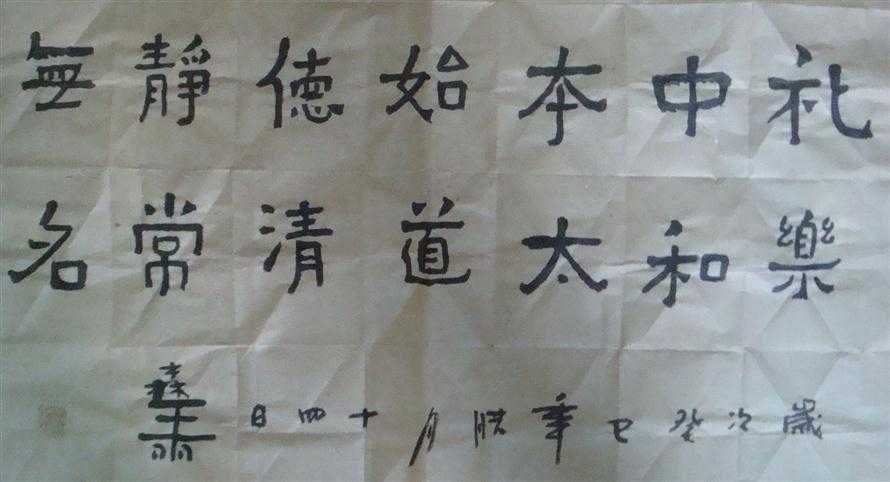 礼樂
中和
本太
始道
德清
靜常
無名
歲次癸巳年腊月十四日